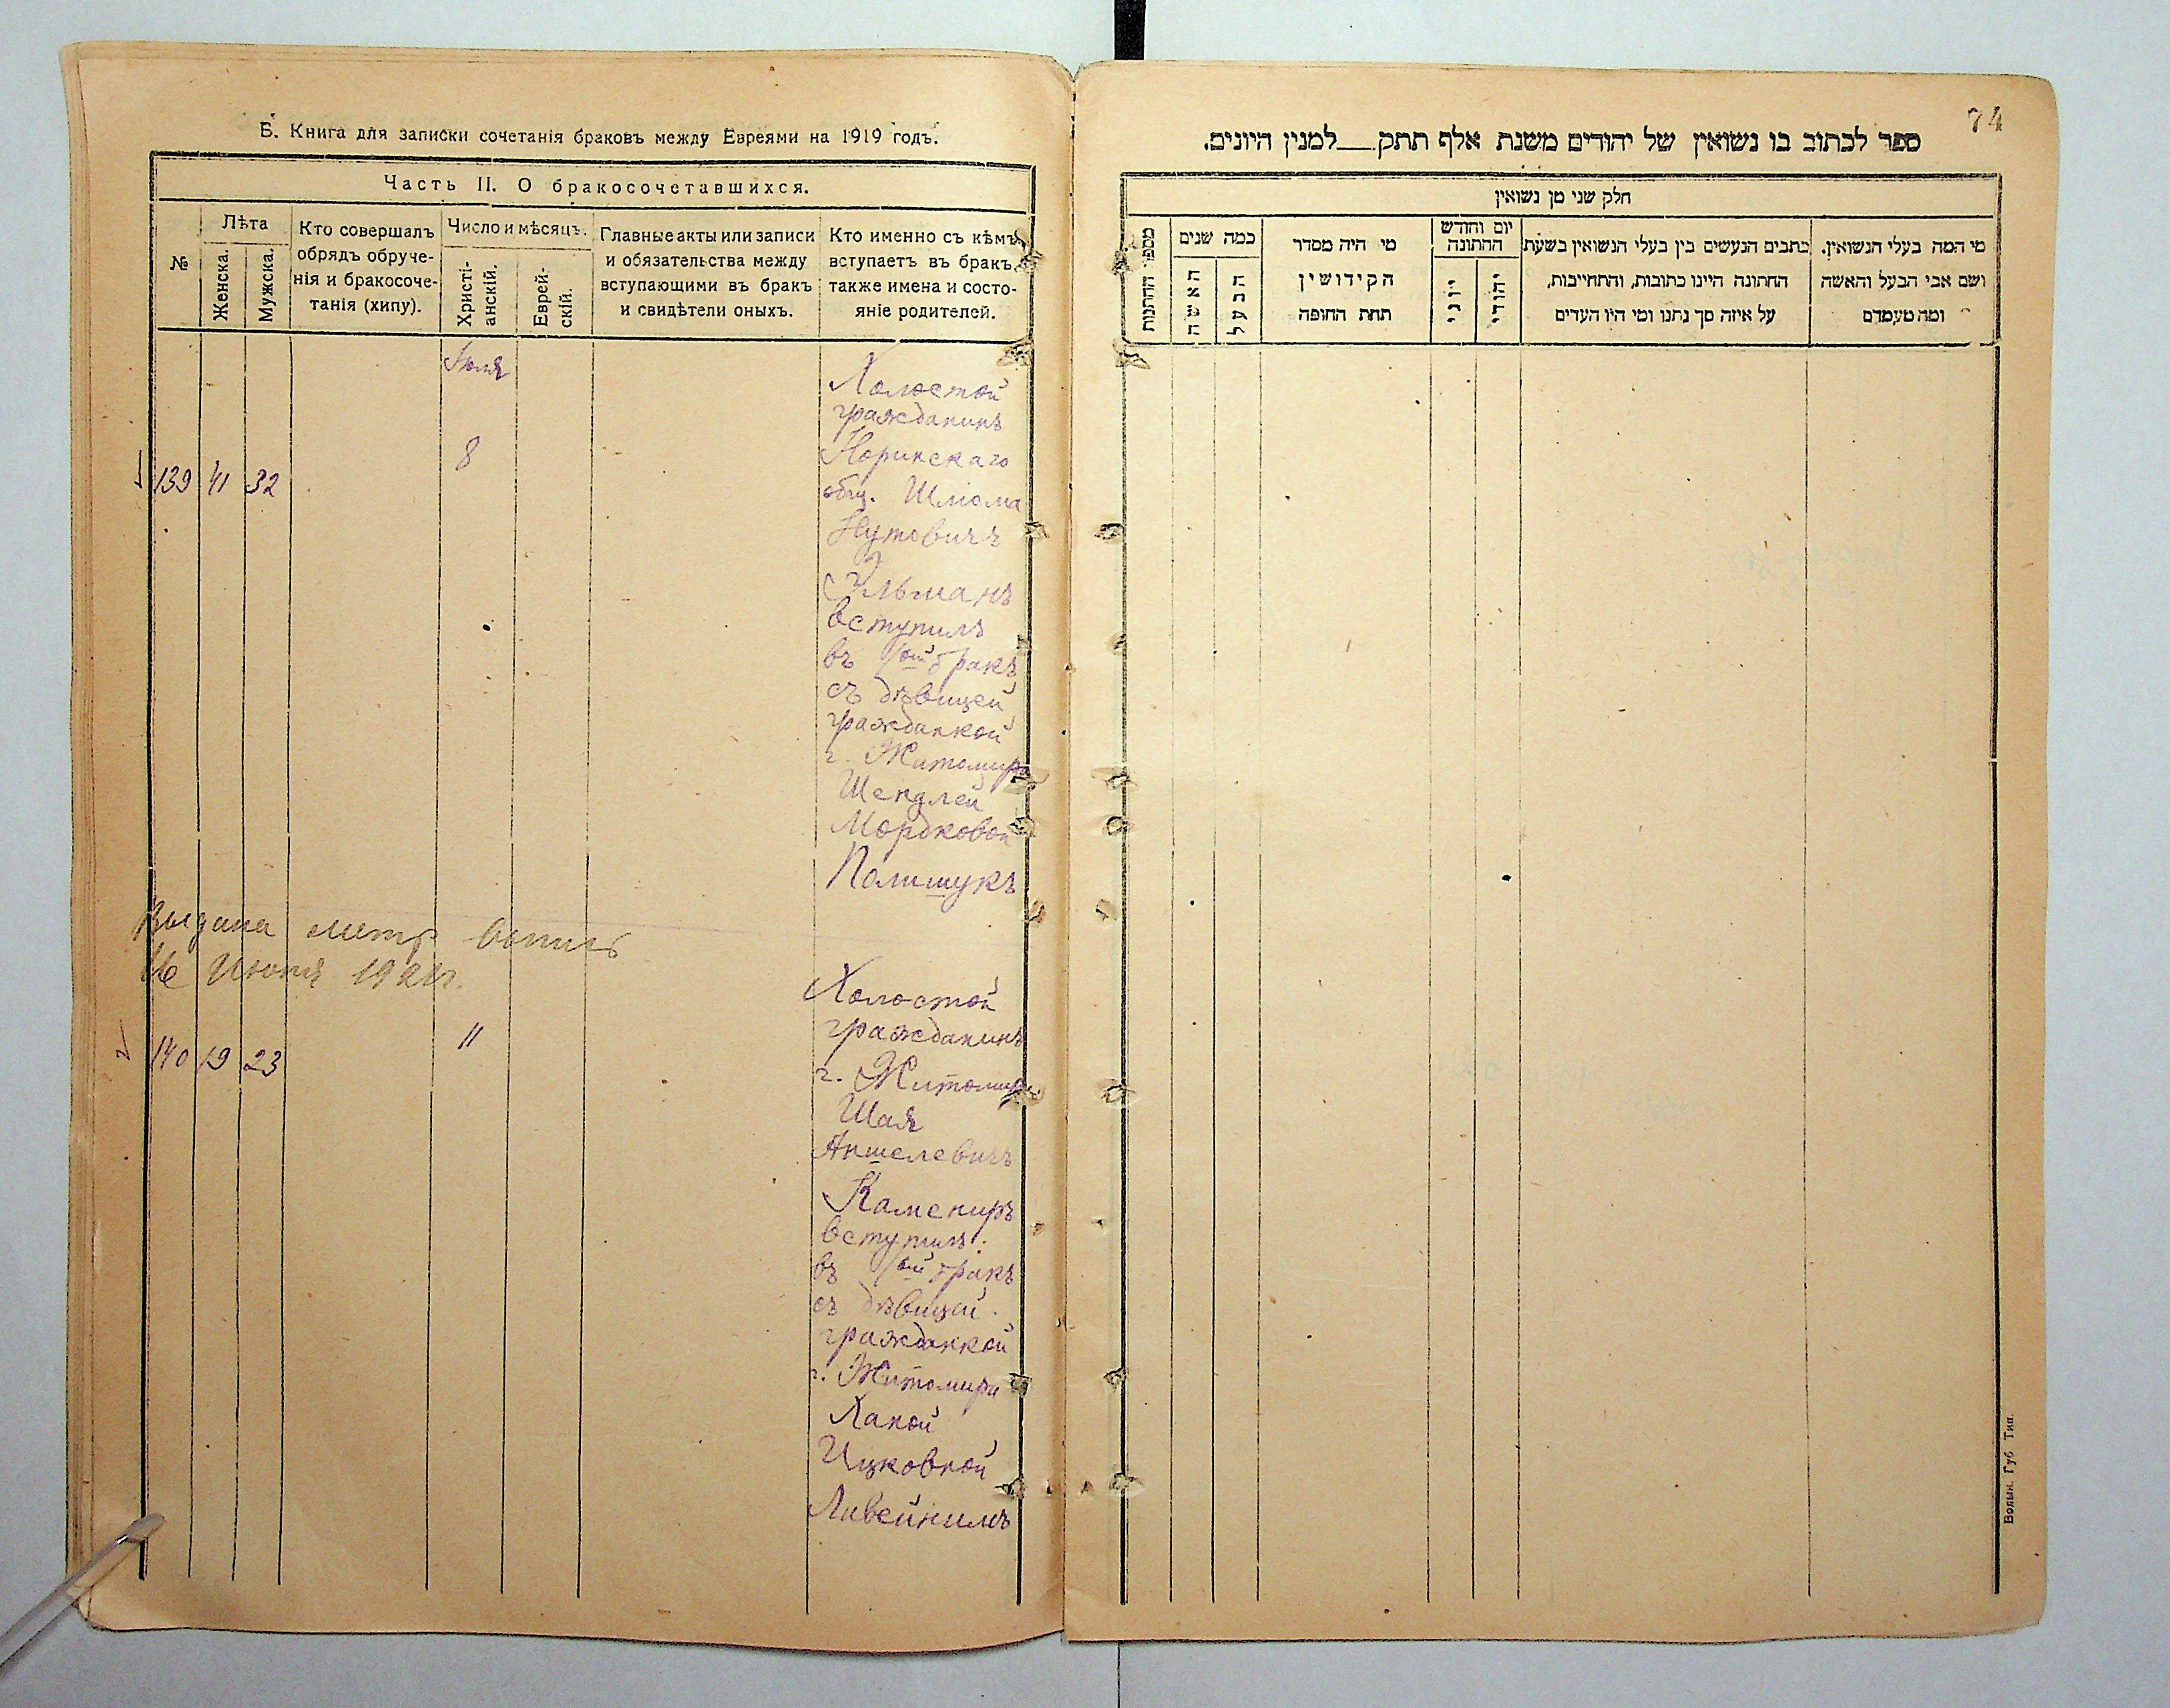 Б. Книга для записки сочетанія браковъ между Евреями на 1919 годъ.
Часть II. О бракосочетавшихся.
№
Лѣта
Женска.
Мужска.
Кто совершалъ
обрядъ обруче-
нія и бракосоче-
танія (хипу).
Число и мѣсяцъ.
Христі-
анскій.
Еврей-
скій.
Главные акты или записи
и обязательства между
вступающими въ бракъ
и свидѣтели оныхъ.
Кто именно съ кѣмъ
вступаетъ въ бракъ,
также имена и состо-
яніе родителей.
139 41 32
8
Холостой
гражданинъ
Норинскаго
общ. Шліома
Нутовичъ
Эльманъ
вступилъ
въ 1ой бракъ
съ дѣвицей
гражданкой
г. Житомира
Шендлей
Мордковой
Полищукъ
Выдана метр выпись
16 Июня 1921г.
140 19 23
11
Холостой
гражданинъ
г. Житомира
Шая
Аншелевичъ
Камениръ
вступилъ
въ 1ой бракъ
съ дѣвицей
гражданкой
г. Житомира
Ханой
Ицковной
74
ספר לכתוב בו נשואין של יהודים משנת אלף תתק__למנין היונים.
חלק שני מן נשואין
מספר החתונות
כמה שנים
האשה
הבעל
מי היה מסדר
הקידושין
תחת החופה
יום וחודש
החתונה
יוני
יהודי
כתבים הנעשים בין בעלי הנשואין בשעת
החתונה היינו כתובות, והתחייבות,
על איזה סך נתנו ומי היו העדים
מי המה בעלי הנשואין.
ושם אבי הבעל והאשה
ומה מעמדם
Волын. Губ. Тип.